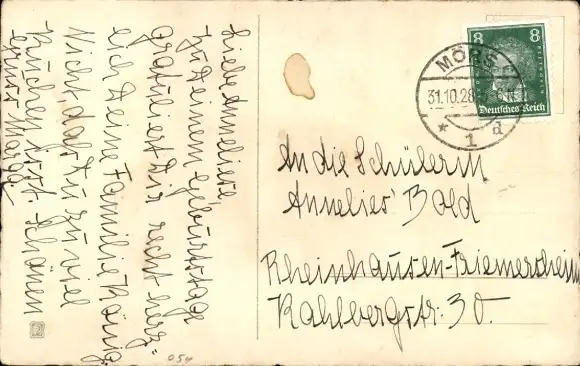 Liebe Anneliese
zu Deinem Geburtstage
gratuliert Dir recht herz=
lich Deine Familie König.
Nicht, daß Du zu viel
Kuchen ißst. Schönen
Gruß
MÖRS
31.10.28
* 1 d
8 8
Deutsches Reich
An die Schülerin
Annelies' Bold
Rheinhausen-Friemersheim
Kahlbergstr. 30.